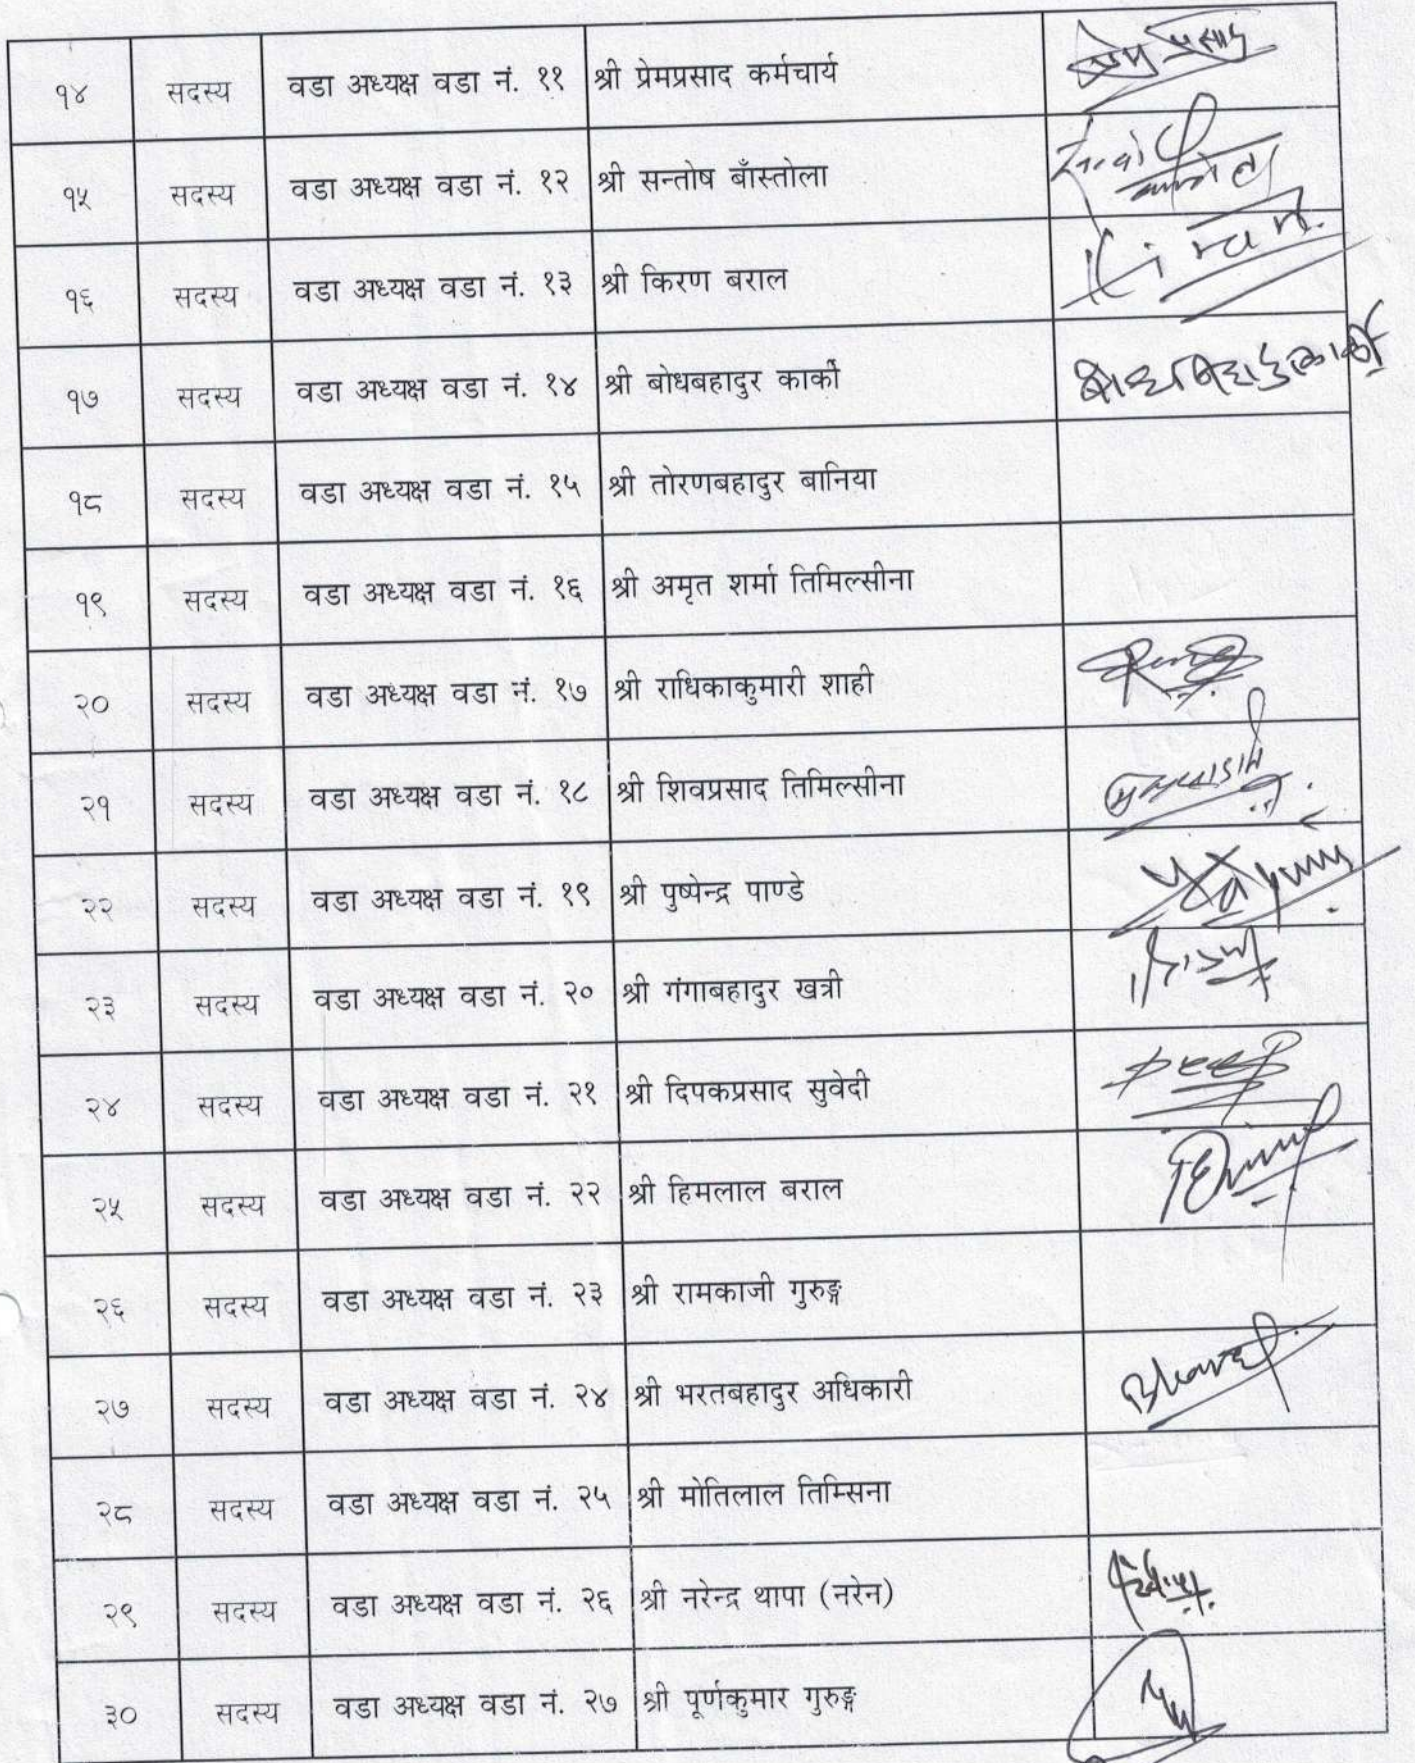 १४ सदस्य वडा अध्यक्ष वडा नं. ११ श्री प्रेमप्रसाद कर्मचार्य
१५ सदस्य वडा अध्यक्ष वडा नं. १२ श्री सन्तोष बाँस्तोला
१६ सदस्य वडा अध्यक्ष वडा नं. १३ श्री किरण बराल Kiran
१७ सदस्य वडा अध्यक्ष वडा नं. १४ श्री बोधबहादुर कार्की बोधबहादुर कार्की
१८ सदस्य वडा अध्यक्ष वडा नं. १५ श्री तोरणबहादुर बानिया
१९ सदस्य वडा अध्यक्ष वडा नं. १६ श्री अमृत शर्मा तिमिल्सीना
२० सदस्य वडा अध्यक्ष वडा नं. १७ श्री राधिकाकुमारी शाही
२१ सदस्य वडा अध्यक्ष वडा नं. १८ श्री शिवप्रसाद तिमिल्सीना
२२ सदस्य वडा अध्यक्ष वडा नं. १९ श्री पुष्पेन्द्र पाण्डे
२३ सदस्य वडा अध्यक्ष वडा नं. २० श्री गंगाबहादुर खत्री
२४ सदस्य वडा अध्यक्ष वडा नं. २१ श्री दिपकप्रसाद सुवेदी
२५ सदस्य वडा अध्यक्ष वडा नं. २२ श्री हिमलाल बराल
२६ सदस्य वडा अध्यक्ष वडा नं. २३ श्री रामकाजी गुरुङ्ग
२७ सदस्य वडा अध्यक्ष वडा नं. २४ श्री भरतबहादुर अधिकारी
२८ सदस्य वडा अध्यक्ष वडा नं. २५ श्री मोतिलाल तिम्सिना
२९ सदस्य वडा अध्यक्ष वडा नं. २६ श्री नरेन्द्र थापा (नरेन)
३० सदस्य वडा अध्यक्ष वडा नं. २७ श्री पूर्णकुमार गुरुङ्ग